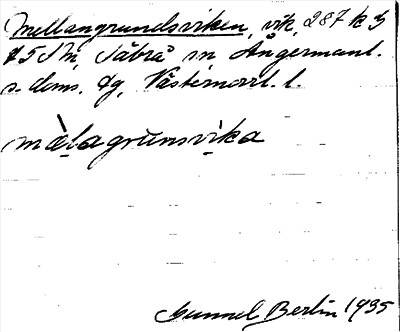 Mellangrundsviken, vik, 287 k 3
Säbrå sn, Ångermanl.
s. doms. dg, Västernorrl. l.
mèlagrunsvika
Gunnel Berlin 1935